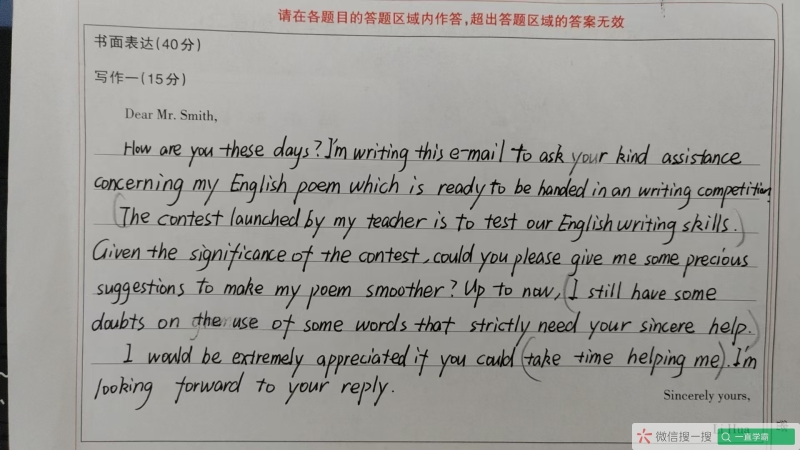 请在各题目的答题区域内作答,超出答题区域的答案无效
书面表达(40分)
写作一(15分)
Dear Mr. Smith,
How are you these days? I'm writing this e-mail to ask your kind assistance
concerning my English poem which is ready to be handed in an writing competition.
(The contest launched by my teacher is to test our English writing skills.)
Given the significance of the contest, could you please give me some precious
suggestions to make my poem smoother? Up to now, (I still have some
doubts on the use of some words that strictly need your sincere help.)
I would be extremely appreciated if you could (take time helping me). I'm
looking forward to your reply.
Sincerely yours,
Li Hua
微信搜一搜 一直学霸